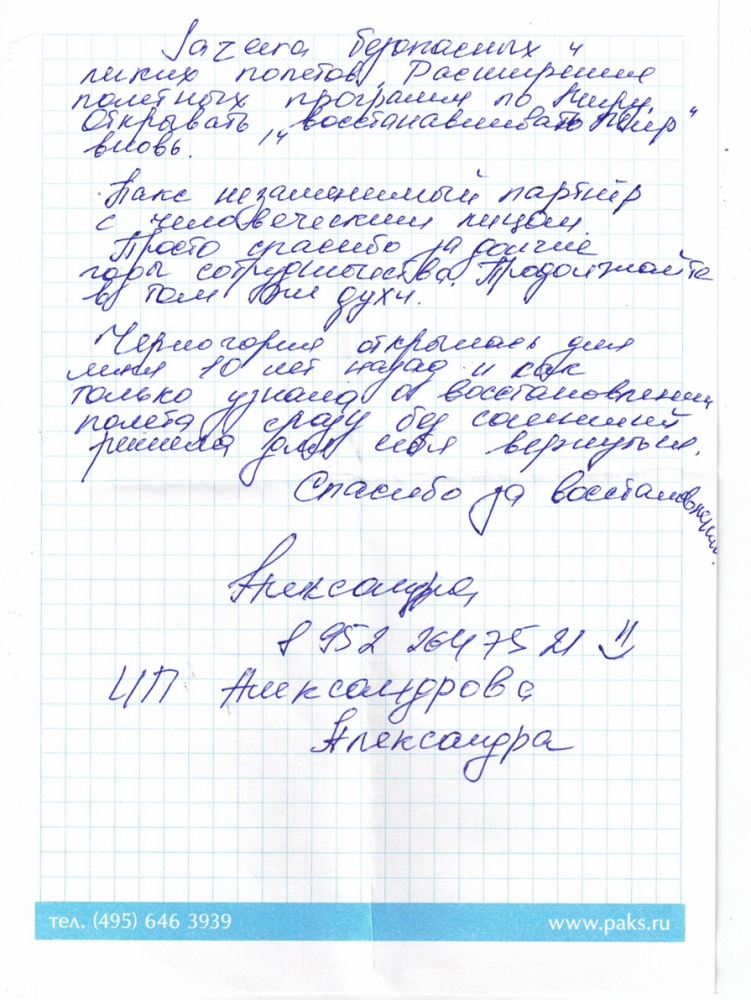 безопасных и
легких полетов. Расширения
полетных программ по Миру.
Открывать, "восстанавливать Мир"
вновь.
Пакс незаменимый партнёр
с человеческим лицом.
Просто спасибо за долгие
годы сотрудничества. Продолжайте
в том же духе.
Черногория открылась для
меня 10 лет назад и как
только узнала о восстановлении
полета сразу без сомнений
решила для себя вернуться.
Спасибо за восстановление.
Александра
8 952 264 75 21
ИП Александрова
Александра
тел. (495) 646 3939
www.paks.ru